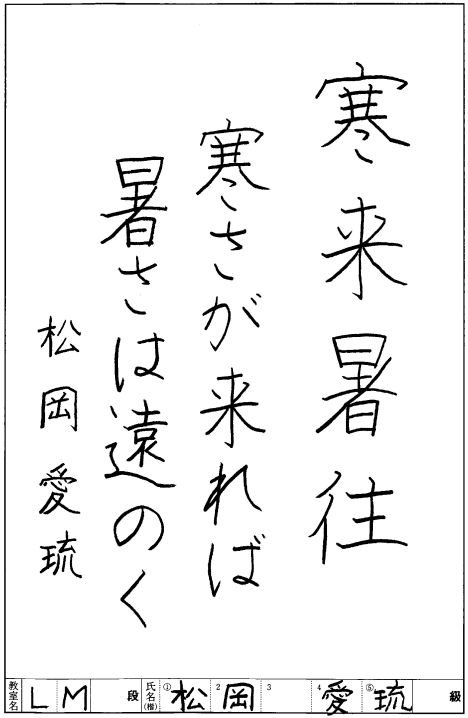 寒来暑往
寒さが来れば
暑さは遠のく
松岡愛琉
教室名 LM 段 氏名(雅) ① 松 2 岡 3 4 愛 ⑤ 琉 級